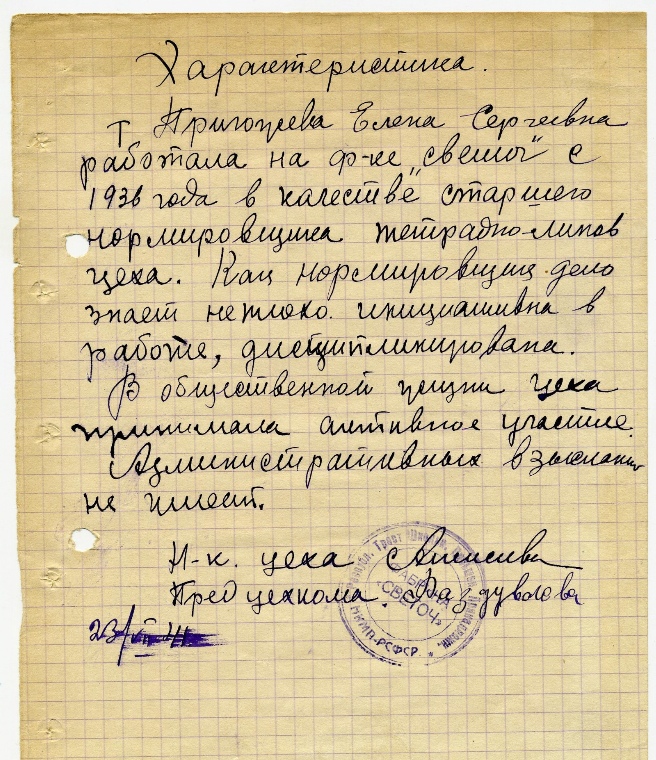 Характеристика.
т Пригожева Елена Сергеевна
работала на ф-ке "Светоч" с
1936 года в качестве старшего
нормировщика тетрадно-линов
цеха. Как нормировщик дело
знает неплохо. инициативна в
работе, дисциплинирована.
В общественной жизни цеха
принимала активное участие.
Административных взысканий
не имеет.
Н-к. цеха
Пред цехкома Раздувалова
23/VII 41
ФАБРИКА
"СВЕТОЧ"
НКМП-РСФСР